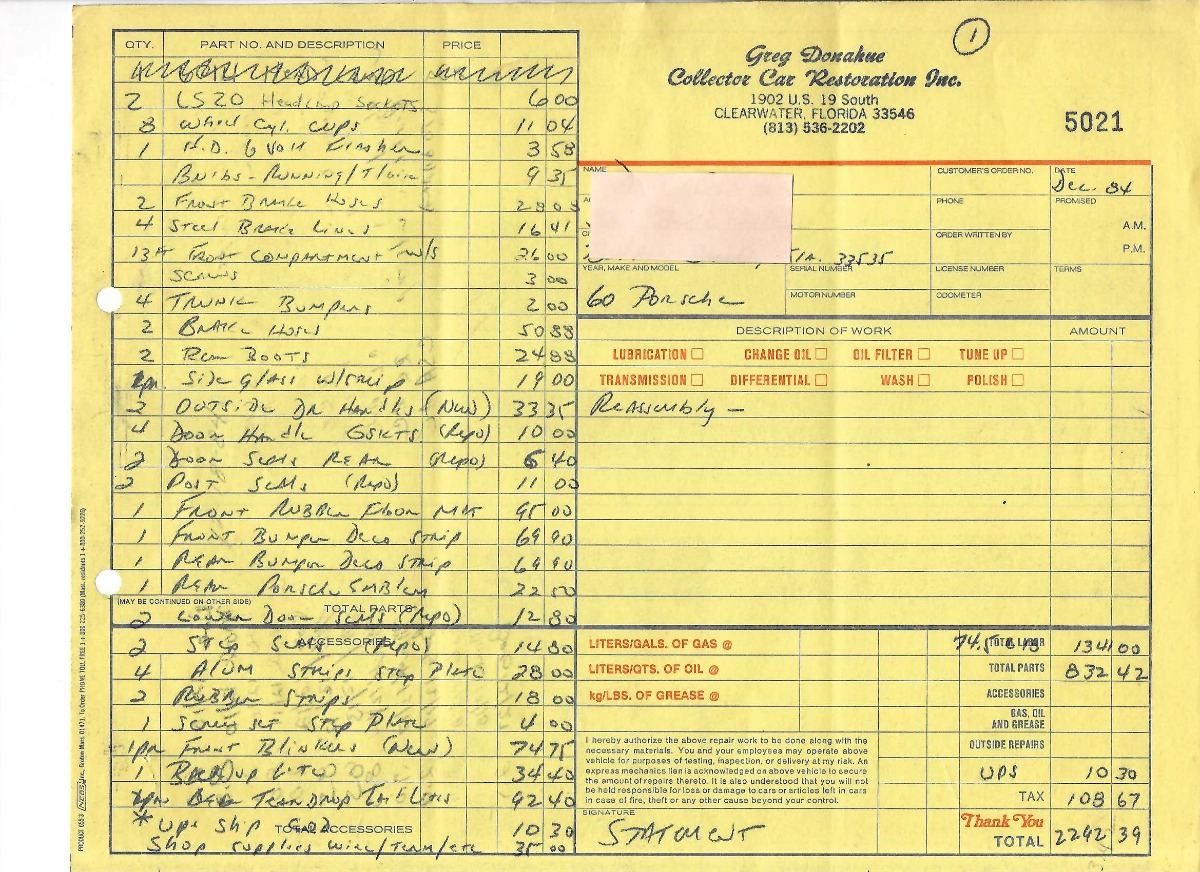 1
QTY. PART NO. AND DESCRIPTION PRICE
2 LS20 Headlamp Sockets 6 00
8 Wheel Cyl. Cups 11 04
1 H.D. 6 Volt Flasher 3 58
Bulbs - Running/T/ 9 35
2 Front Brake Hoses 28 08
4 Steel Brake Lines 16 41
13 Ft Front Compartment w/s 26 00
Screws 3 00
4 Trunk Bumpers 2 00
2 Brake Hoses 50 88
2 Rear Boots 24 88
1pr. Side Glass w/strip 19 00
2 Outside Dr Handles (New) 33 35
4 Door Handle Gskts. (Repo) 10 00
2 Door Seals Rear (Repo) 6 40
2 Post Seals (Repo) 11 00
1 Front Rubber Floor Mat 95 00
1 Front Bumper Deco Strip 69 90
1 Rear Bumper Deco Strip 69 90
1 Rear Porsche Emblem 22 50
(MAY BE CONTINUED ON OTHER SIDE) TOTAL PARTS
2 Lower Door Seals (Repo) 12 80
ACCESSORIES
2 Step Seals (Repo) 14 80
4 Alum Strips Step Plate 28 00
2 Rubber Strips 18 00
1 Screw set Step Plate 4 00
1pr Front Blinkers (New) 74 75
1 34 40
Teardrop 92 40
* Ups Ship COD 10 30
TOTAL ACCESSORIES
Shop supplies wire/term/etc 35 00
PRODUCT 655-3 NEBS Inc., Groton, Mass. 01471. To Order PHONE TOLL FREE 1+800-225-6380 (Mass. residents 1+800-252-9226)
Greg Donahue
Collector Car Restoration Inc.
1902 U.S. 19 South
CLEARWATER, FLORIDA 33546
(813) 536-2202
5021
NAME
CUSTOMER'S ORDER NO.
DATE
Dec. 84
PHONE
PROMISED
A.M.
ORDER WRITTEN BY
P.M.
33535
YEAR, MAKE AND MODEL
60 Porsche
SERIAL NUMBER
LICENSE NUMBER
TERMS
MOTOR NUMBER
ODOMETER
DESCRIPTION OF WORK AMOUNT
LUBRICATION CHANGE OIL OIL FILTER TUNE UP
TRANSMISSION DIFFERENTIAL WASH POLISH
Reassembly -
LITERS/GALS. OF GAS @ 74.5 TOTAL LABOR 1341 00
LITERS/QTS. OF OIL @ TOTAL PARTS 832 42
kg/LBS. OF GREASE @ ACCESSORIES
GAS, OIL
AND GREASE
I hereby authorize the above repair work to be done along with the
necessary materials. You and your employees may operate above
vehicle for purposes of testing, inspection, or delivery at my risk. An
express mechanics lien is acknowledged on above vehicle to secure
the amount of repairs thereto. It is also understood that you will not
be held responsible for loss or damage to cars or articles left in cars
in case of fire, theft or any other cause beyond your control.
OUTSIDE REPAIRS
UPS 10 30
TAX 108 67
SIGNATURE
STATMENT
Thank You
TOTAL 2292 39